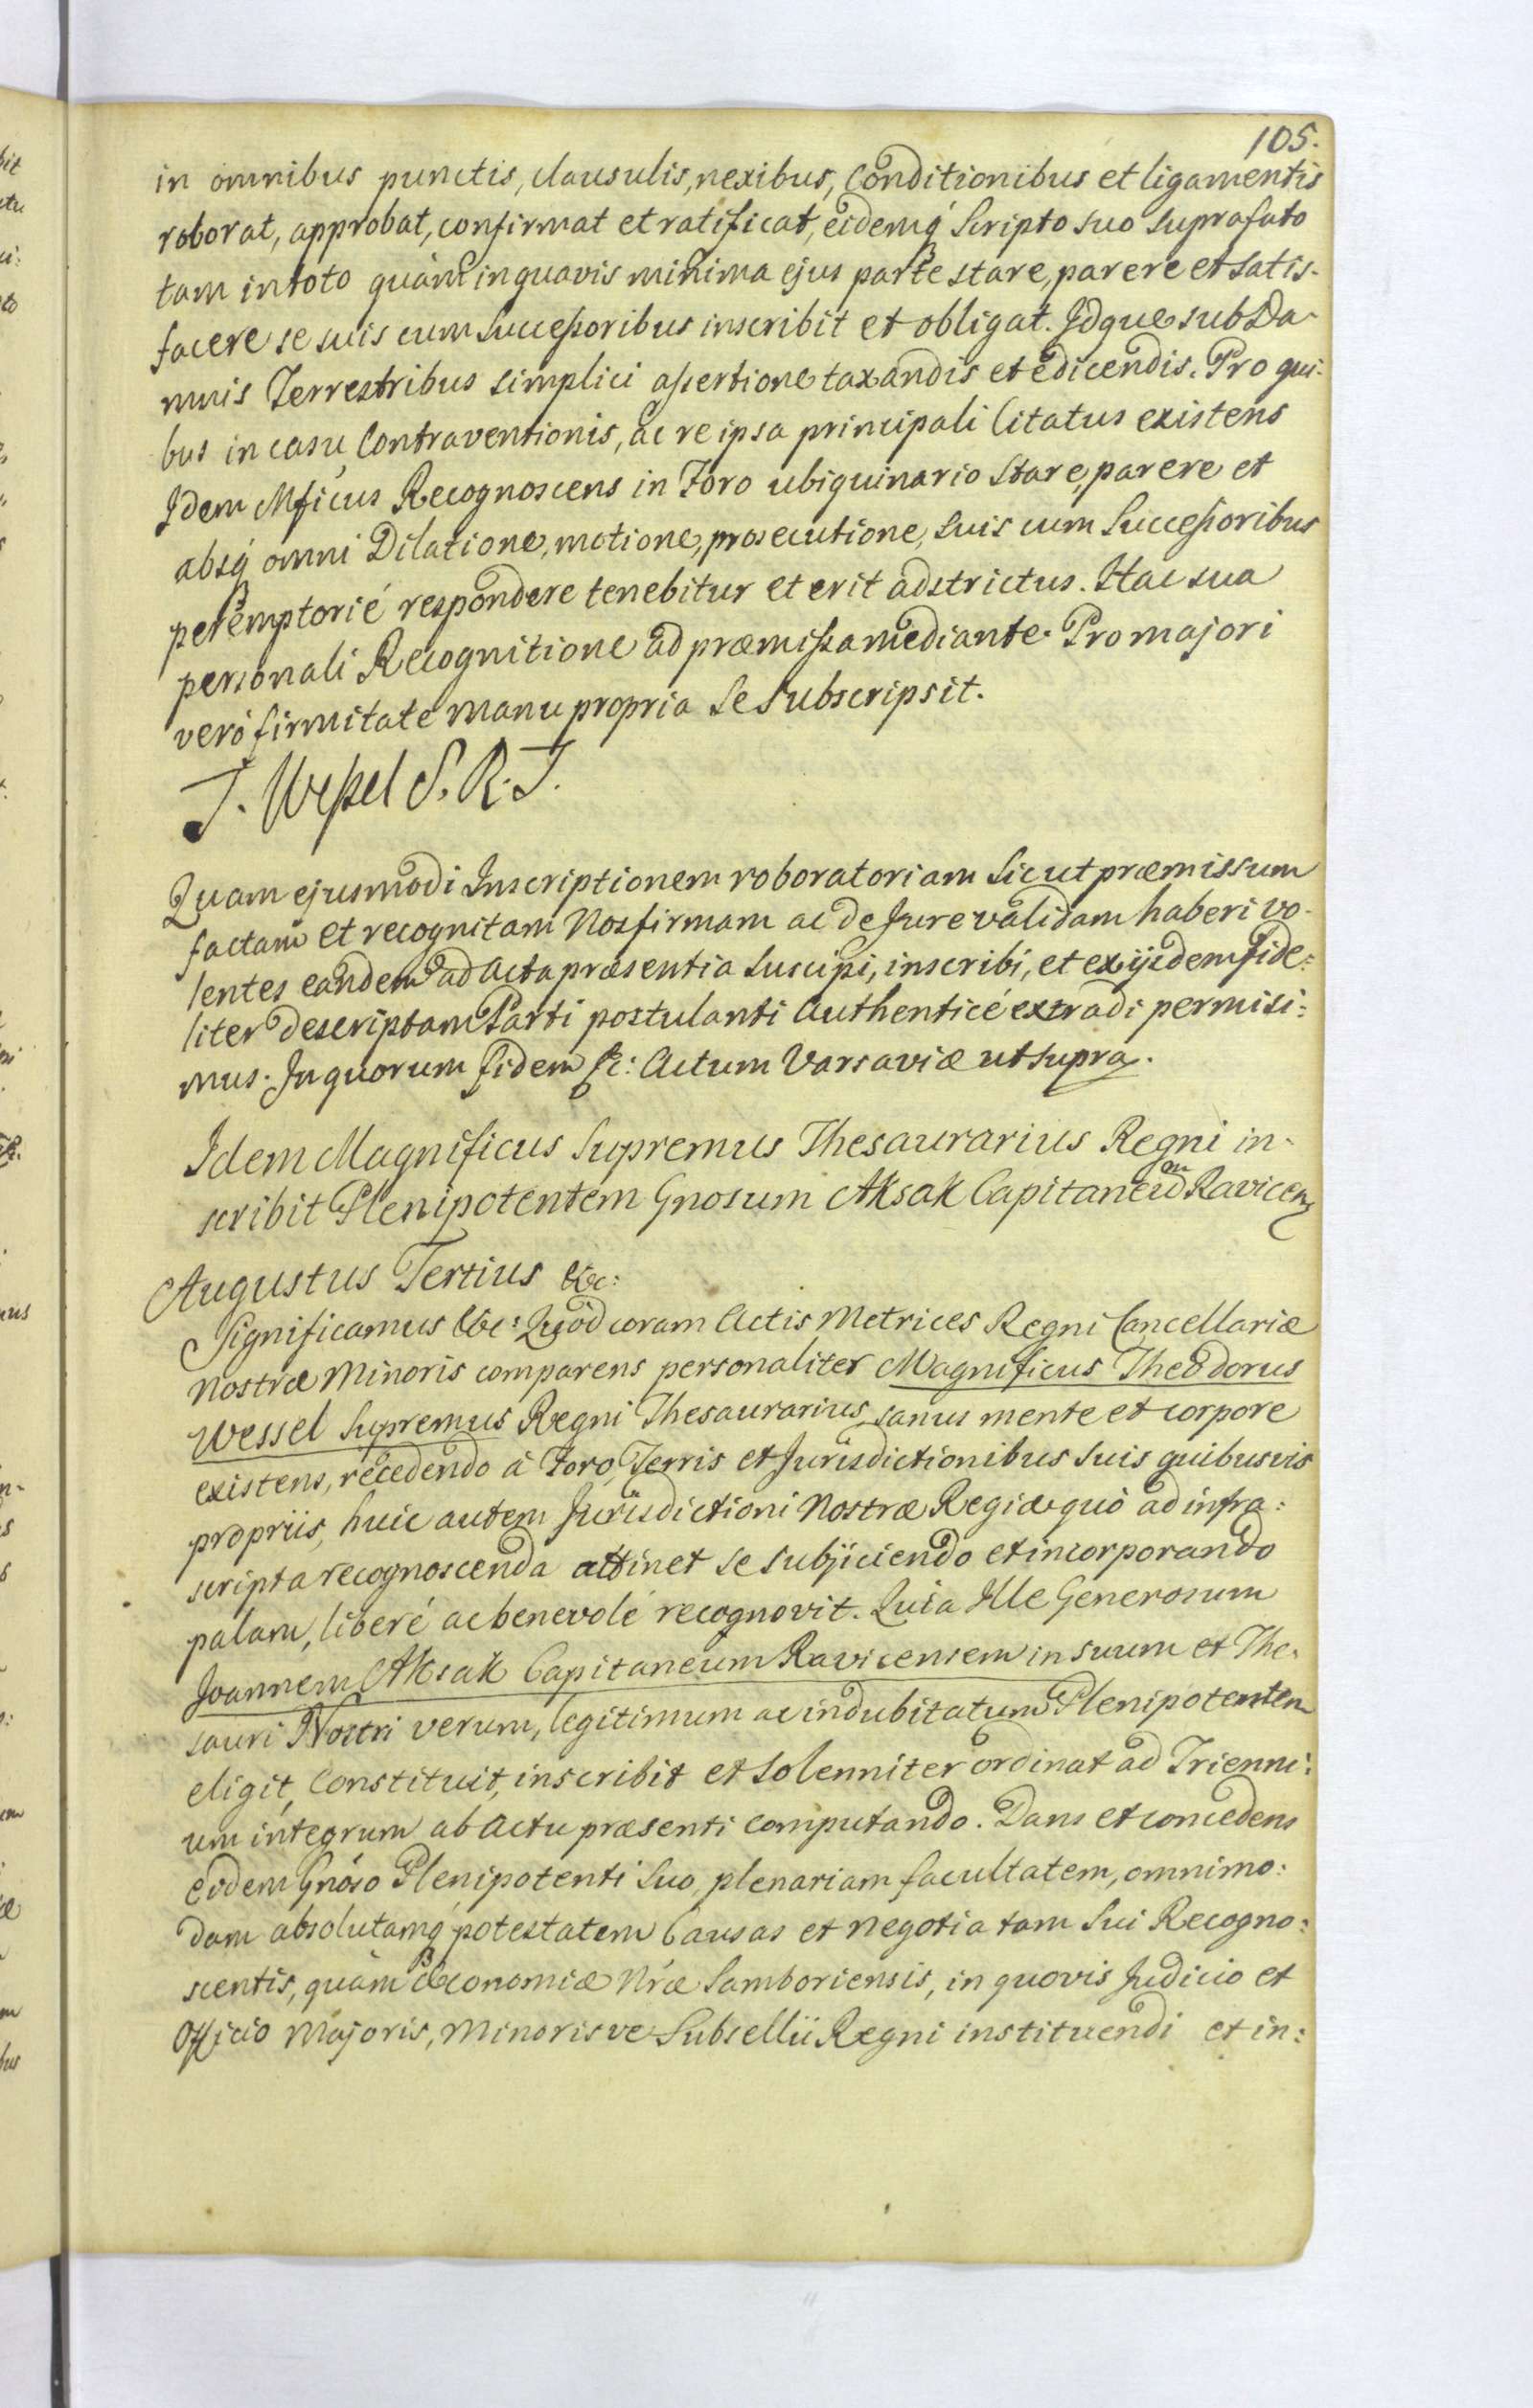 105.
in omnibus punctis, clausulis, nexibus, Conditionibus et ligamentis
roborat, approbat, confirmat et ratificat, eidemq́ Scripto suo suprafato
tam in toto quàm in quavis minima ejus parte stare, parere et satis-
facere se suis cum Succeßoribus inscribit et obligat. Idque sub Da-
mnis Terrestribus simplici aßertione taxandis et edicendis. Pro qui:
bus in casu Contraventionis, ac re ipsa principali Citatus existens
Idem Mficus Recognoscens in Foro ubiquinario Stare, parere et
absq́ omni Dilatione, motione, prosecutione, suis cum Succeßoribus
peremptorié respondere tenebitur et erit adstrictus. Hac sua
personali Recognitione ad præmißa mediante. Pro majori
veró firmitate manu propria se subscripsit.
T. Weßel S. R. T.
Quam ejusmodi Inscriptionem roboratoriam sicut præmissum
factam et recognitam Nos firmam ac de Jure validam haberi vo-
lentes eandem ad Acta præsentia suscipi, inscribi, et ex ijsdem fide:
liter descriptam Parti postulanti Authenticé extradi permisi:
mus. In quorum fidem &c: Actum Varsaviæ ut supra.
Idem Magnificus Supremus Thesaurarius Regni in-
scribit Plenipotentem Gnosum Aksak Capitaneum Ravicen
Augustus Tertius &c:
Significamus &c: Quod coram Actis Metrices Regni Cancellariæ
Nostræ Minoris comparens personaliter Magnificus Theodorus
Wessel Supremus Regni Thesaurarius sanus mente et corpore
existens, recedendo á Foro, Terris et Jurisdictionibus suis quibusvis
propriis, huic autem Jurisdictioni Nostræ Regiæ quò ad infra:
scripta recognoscenda attinet se subjiciendo et incorporando
palam, liberé ac benevolé recognovit. Quia Ille Generosum
Joannem Aksak Capitaneum Ravicensem in suum et The-
sauri Nostri verum, legitimum ac indubitatum Plenipotentem
eligit, Constituit, inscribit et solenniter ordinat ad Trienni:
um integrum ab actu præsenti computando. Dans et concedens
eidem Gnóso Plenipotenti suo plenariam facultatem, omnimo:
dam absolutamq́ potestatem Causas et negotia tam sui Recogno:
scentis, quàm Œconomiæ Nræ Samboriensis, in quovis Judicio et
Officio Majoris, Minorisve Subsellii Regni instituendi et in: